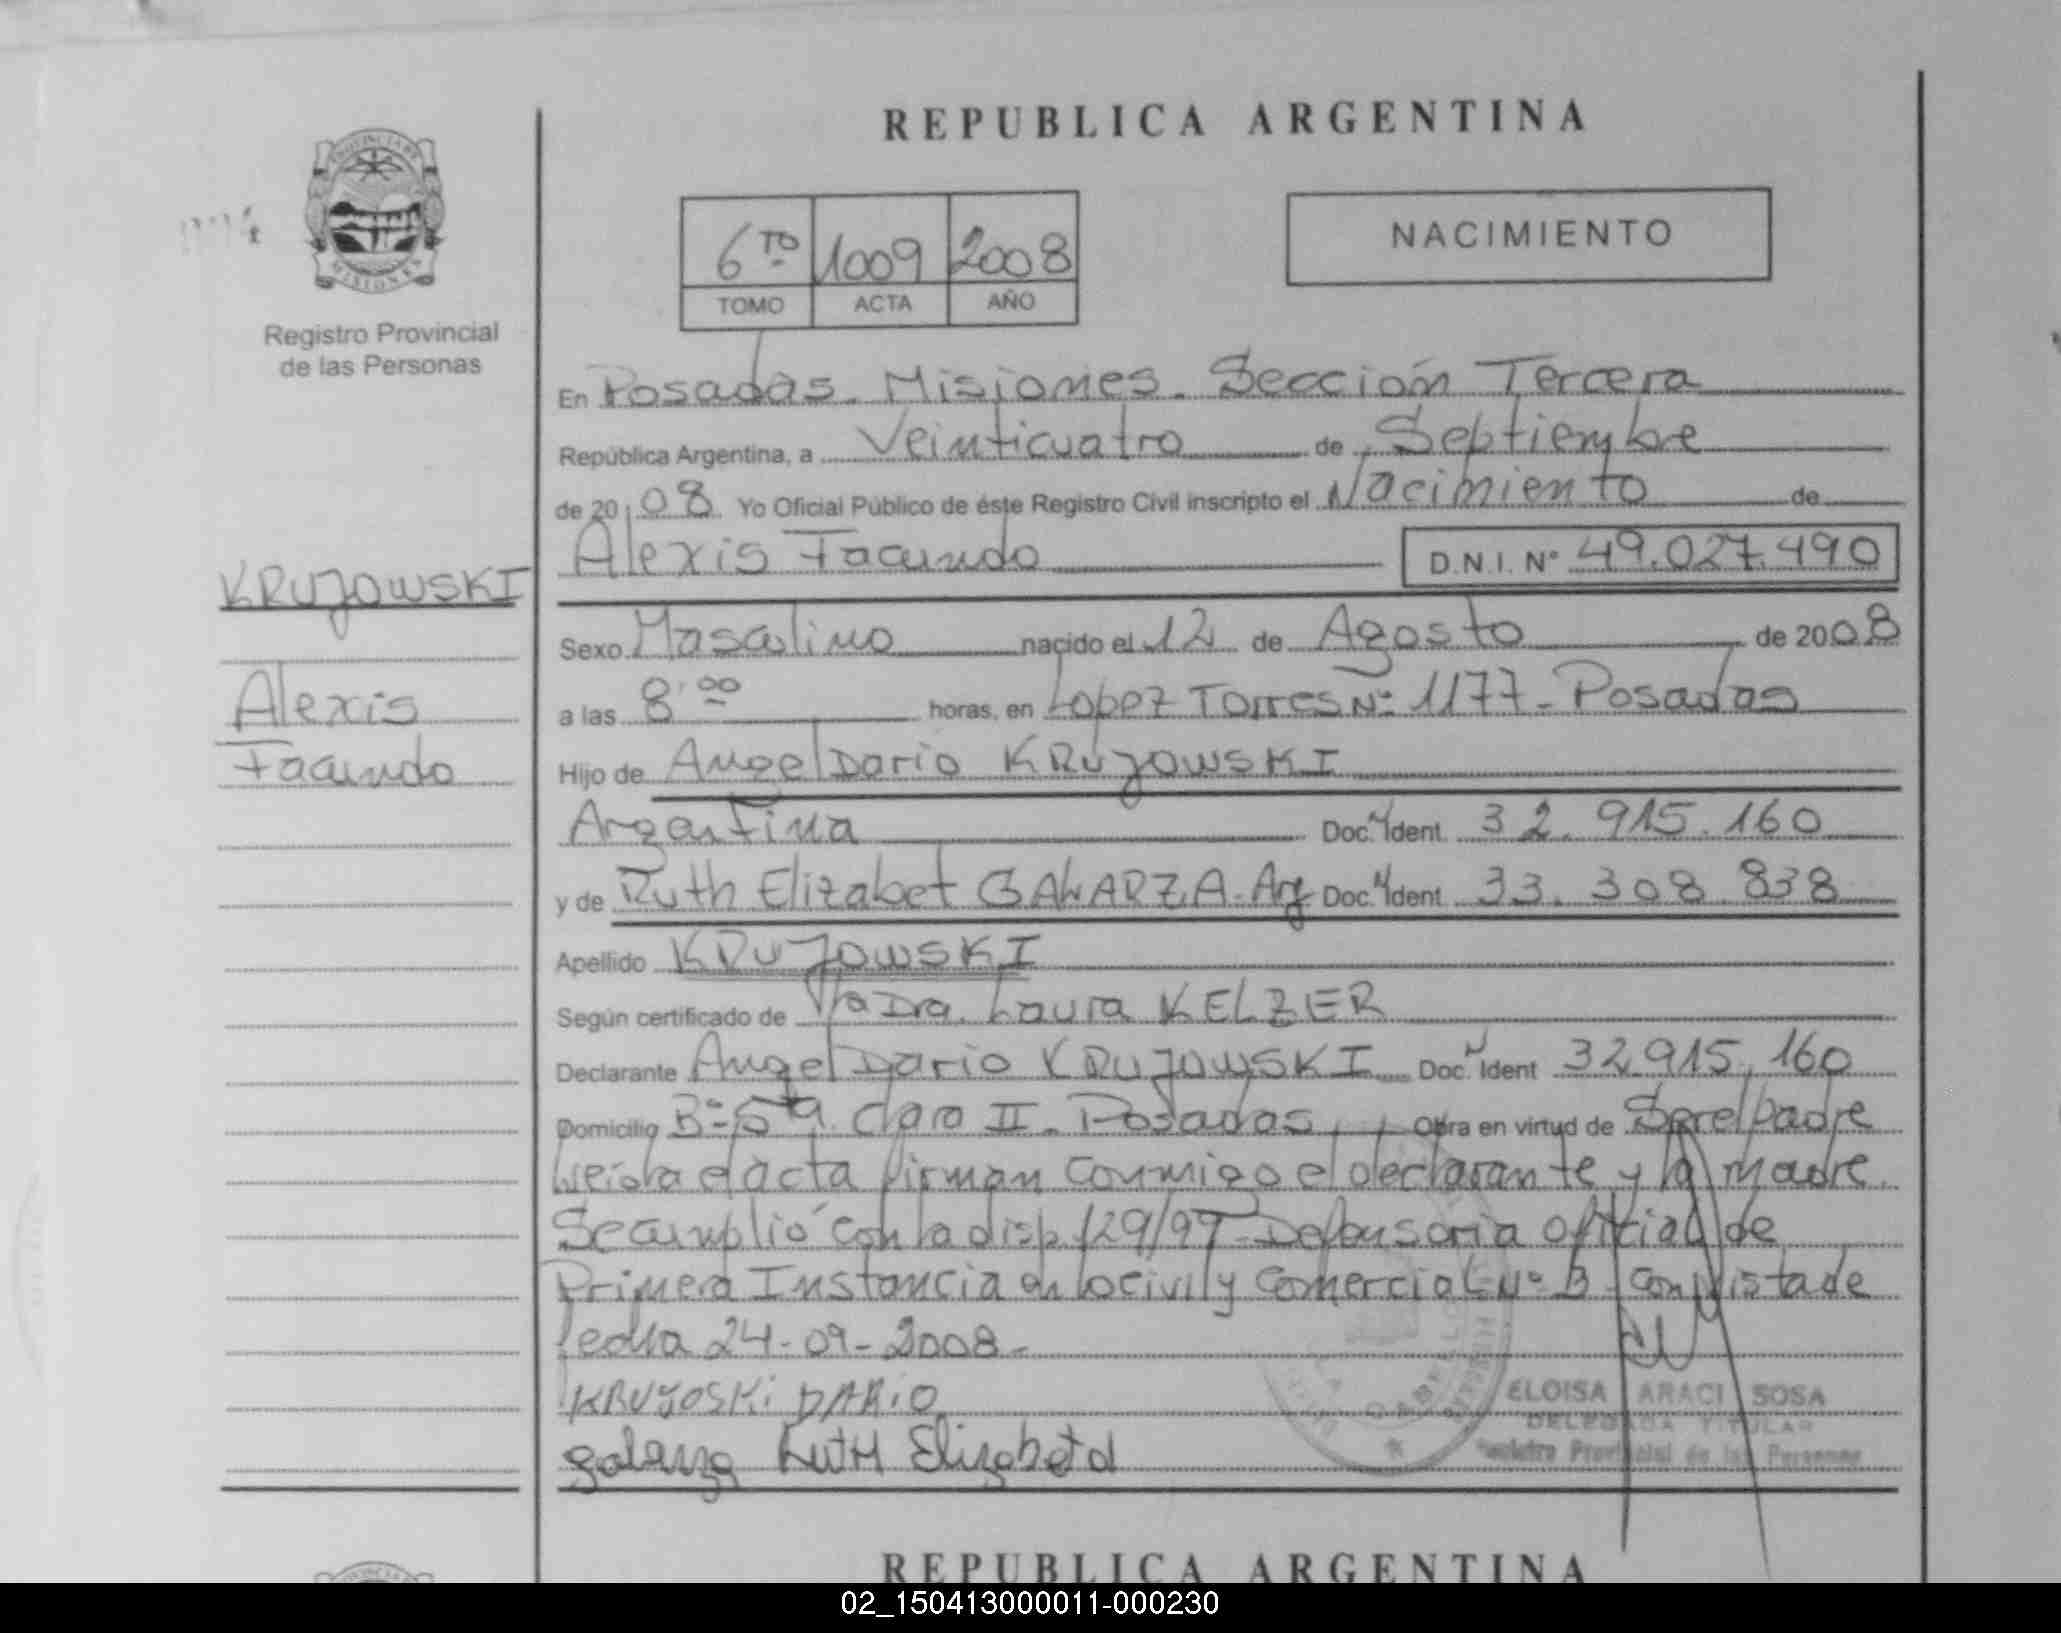 REPUBLICA ARGENTINA
PROVINCIA DE
MISIONES
Registro Provincial
de las Personas
6TO 1009 2008
TOMO ACTA AÑO
NACIMIENTO
En Posadas. Misiones. Sección Tercera
República Argentina, a Veinticuatro de Septiembre
de 2008 Yo Oficial Público de éste Registro Civil inscripto el Nacimiento de
Alexis Facundo D.N.I. Nº 49.027.490
KRUJOWSKI
Alexis
Facundo
Sexo Masculino nacido el 12 de Agosto de 2008
a las 8:00 horas, en Lopez Torres Nº 1177 - Posadas
Hijo de Angel Dario KRUJOWSKI
Argentina Doc. N Ident. 32.915.160
y de Ruth Elizabet GALARZA - Arg Doc. N Ident. 33.308.838
Apellido KRUJOWSKI
Según certificado de la Dra. Laura KELZER
Declarante Angel Dario KRUJOWSKI Doc. N Ident 32.915.160
Domicilio Bº Sta. Clara II - Posadas Obra en virtud de Ser el padre
Leída el acta firman conmigo el declarante y la madre.
Se cumplió con la disp 129/97 - Defensoria Oficial de
Primera Instancia en lo Civil y Comercial Nº 3 - con vista de
fecha 24-09-2008-
KRUJOSKI DARIO
galarza RUTH Elizabeta
ELOISA ARACI SOSA
DELEGADA TITULAR
Registro Provincial de las Personas
REPUBLICA ARGENTINA
02_150413000011-000230